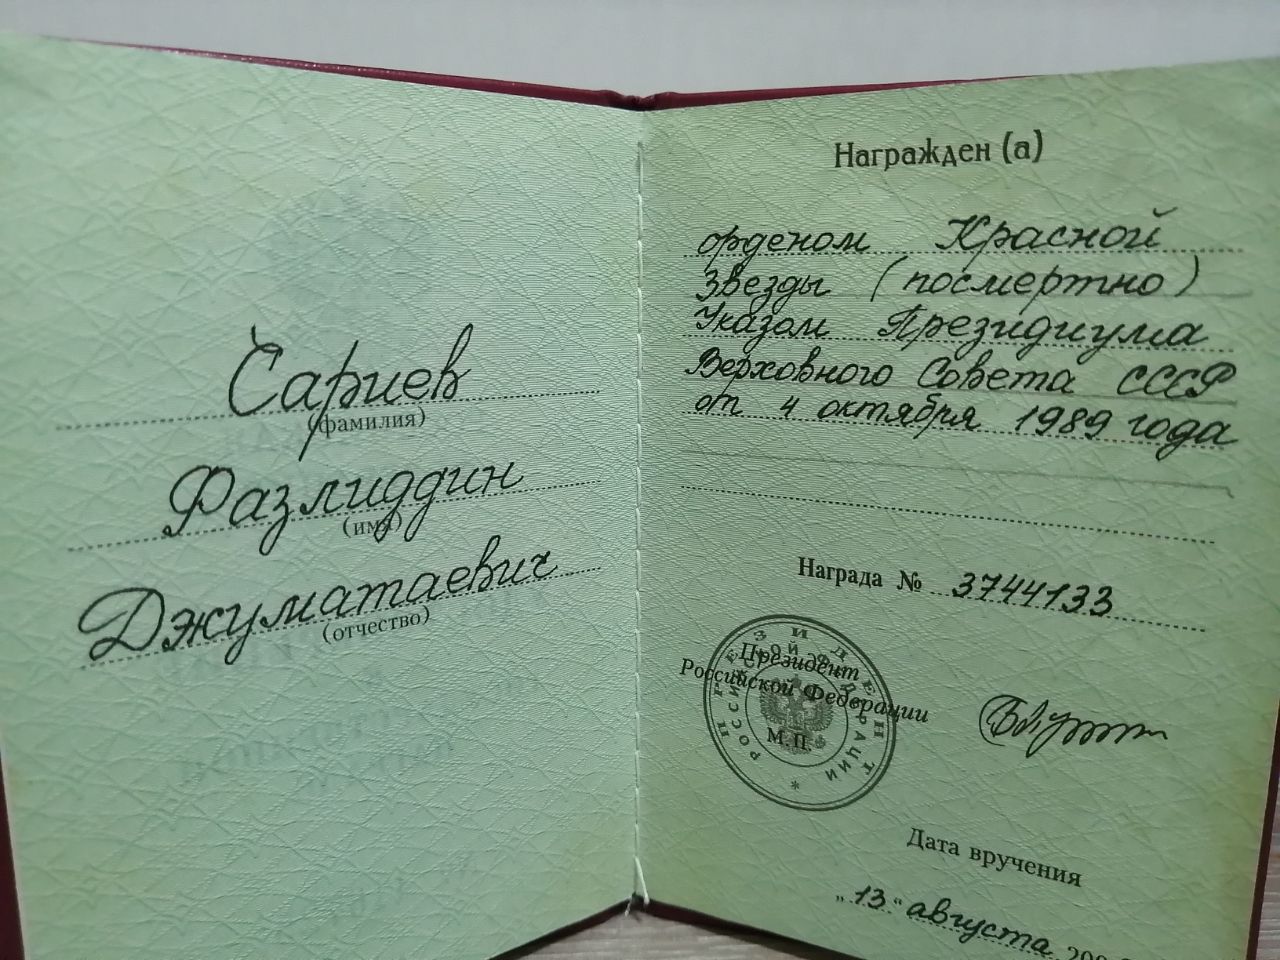 Сариев
(фамилия)
Фазлиддин
(имя)
Джуматаевич
(отчество)
Награжден (а)
орденом Красной
Звезды (посмертно)
Указом Президиума
Верховного Совета СССР
от 4 октября 1989 года
Награда № 3744133
ПРЕЗИДЕНТ
РОССИЙСКОЙ ФЕДЕРАЦИИ
*
Президент
Российской Федерации
М.П.
Дата вручения
„13“ августа 200